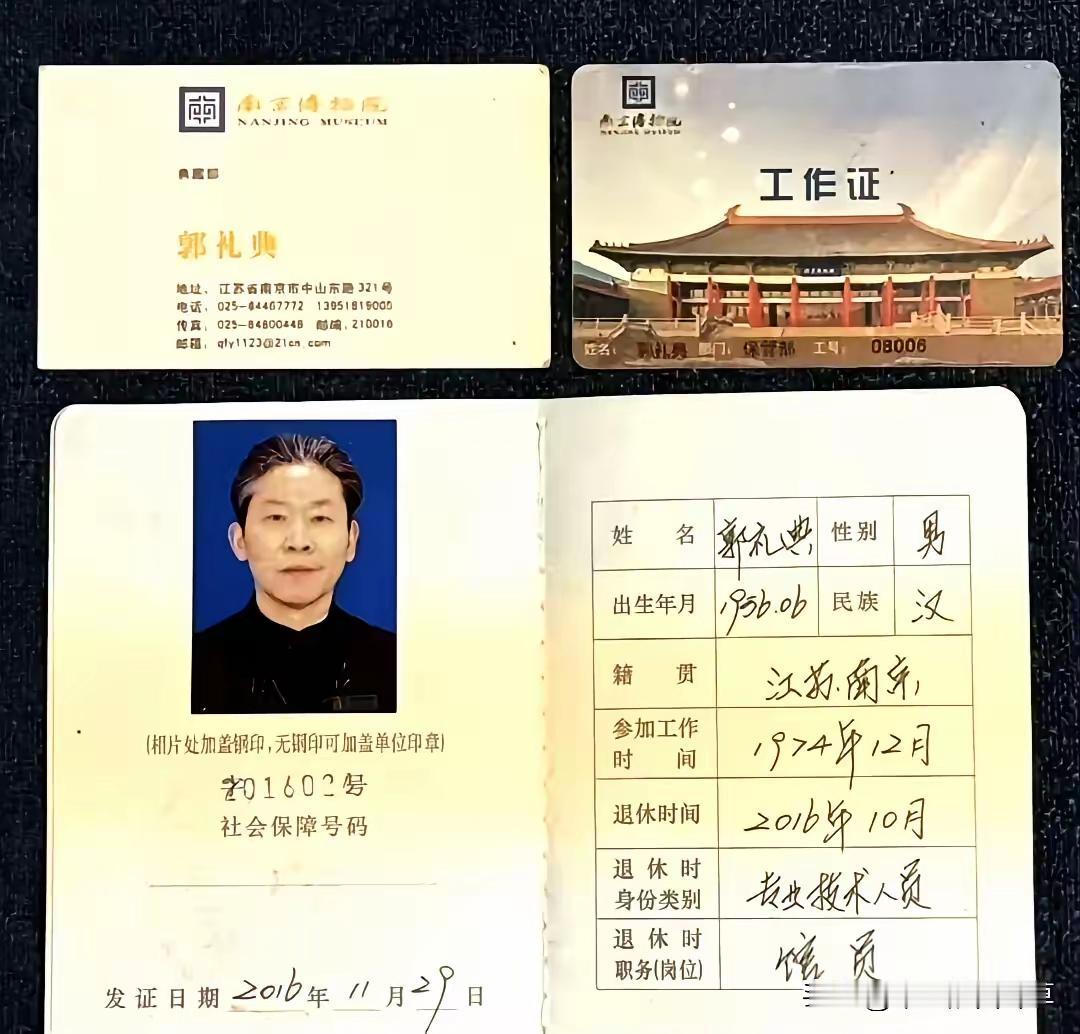 南京博物院
NANJING MUSEUM
典藏部
郭礼典
地址：江苏省南京市中山东路321号
电话：025-84467772 13951819005
传真：025-84800448 邮编：210016
邮箱：qly1123@21cn.com
南京博物院
NANJING MUSEUM
工作证
姓名：郭礼典 部门：保管部 工号：08006
(相片处加盖钢印,无钢印可加盖单位印章)
社会保障号码
发证日期 2016年 11月29日
姓名 郭礼典 性别 男
出生年月 1956.06 民族 汉
籍贯 江苏南京
参加工作时间 1974年12月
退休时间 2016年10月
退休时身份类别 专业技术人员
退休时职务(岗位) 馆员